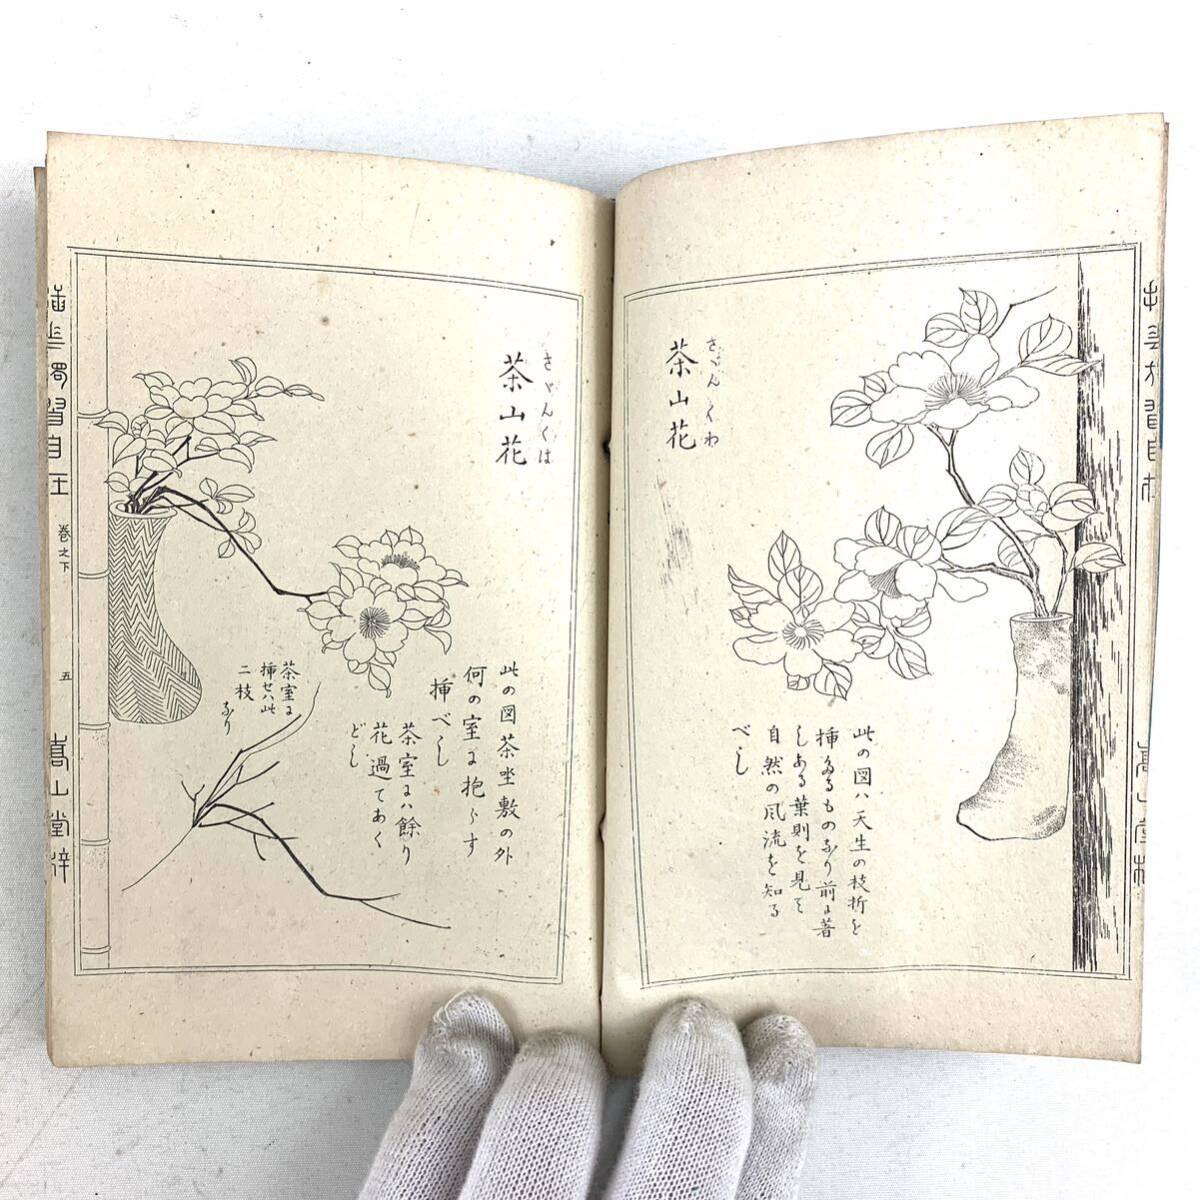 さざんくわ
茶山花
此の図ハ天生の枝折を
挿たるものなり前に著
しある葉則を見て
自然の風流を知る
べし
さゞんくは
茶山花
此の図茶坐敷の外
何の室に抱らす
挿べし
茶室にハ餘り
花過てあく
どし
茶室に
挿せハ此
二枝
なり
挿花独習自在
巻之下
五
嵩山堂梓